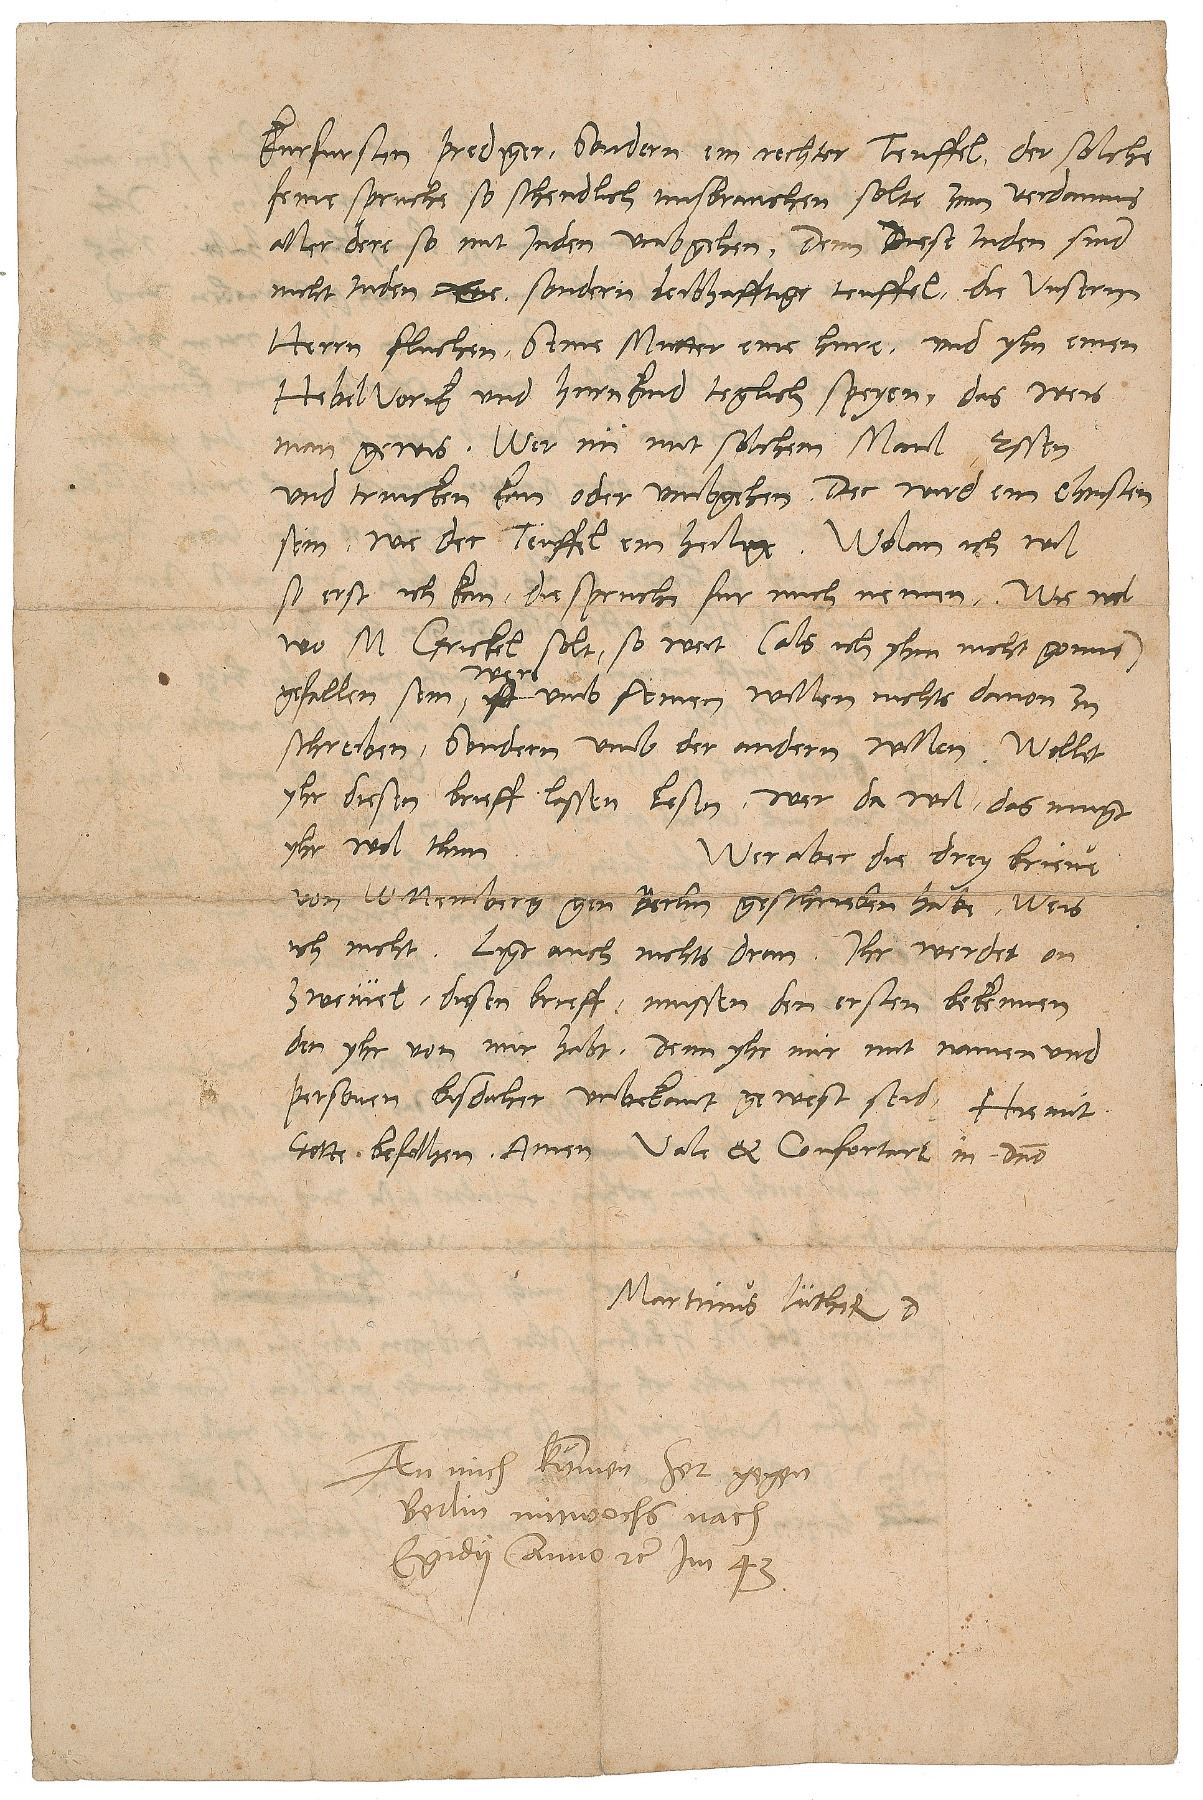 kurfursten prediger, Sondern ein rechter Teuffel, der solche
feine spruche so schendlich misbrauchen solte zum verdamnis
aller dere so mit Juden umbgehen, Denn Diese Juden sind
nicht Juden sondern leibhafftige teuffel, die Unsern
Herrn fluchen, Seine Mutter eine hure, und yhn einen
Hebel Vorik und hurnkind teglich speyen, das weis
man gewis. Wer nu mit solchem Maul Essen
und trincken kan oder umbgehen Der wird ein Christen
sein, wie der Teuffel ein heilige. Wolan ich wil
so erst ich kan, die spruche fur mich nemen, Wie wol
wo M Grickel solt, so weit (als ich yhm nicht gonne)
gefallen sein, were umb seinen willen nichts davon zu
schreiben, Sondern umb der andern willen. Wollet
yhr diesen brieff lassen lesen, wer da wil, das mugt
yhr wol thun Wer aber die drey brieve
von Wittemberg gen Berlin geschrieben habe, Weis
ich nicht. Ligt auch nichts dran. Ihr werdet on
zweivel, diesen brieff, mussen den ersten bekennen
den yhr von mir habt, denn yhr mir mit namen und
personen bisdaher unbekant gewest seid, Hiemit
Gotte befolhen. Amen Vale & Confortare in Dno
Martinus Luther D
An mich kumen her gegen
Berlin mitwochs nach
Egidij Anno ꝛc Im 43